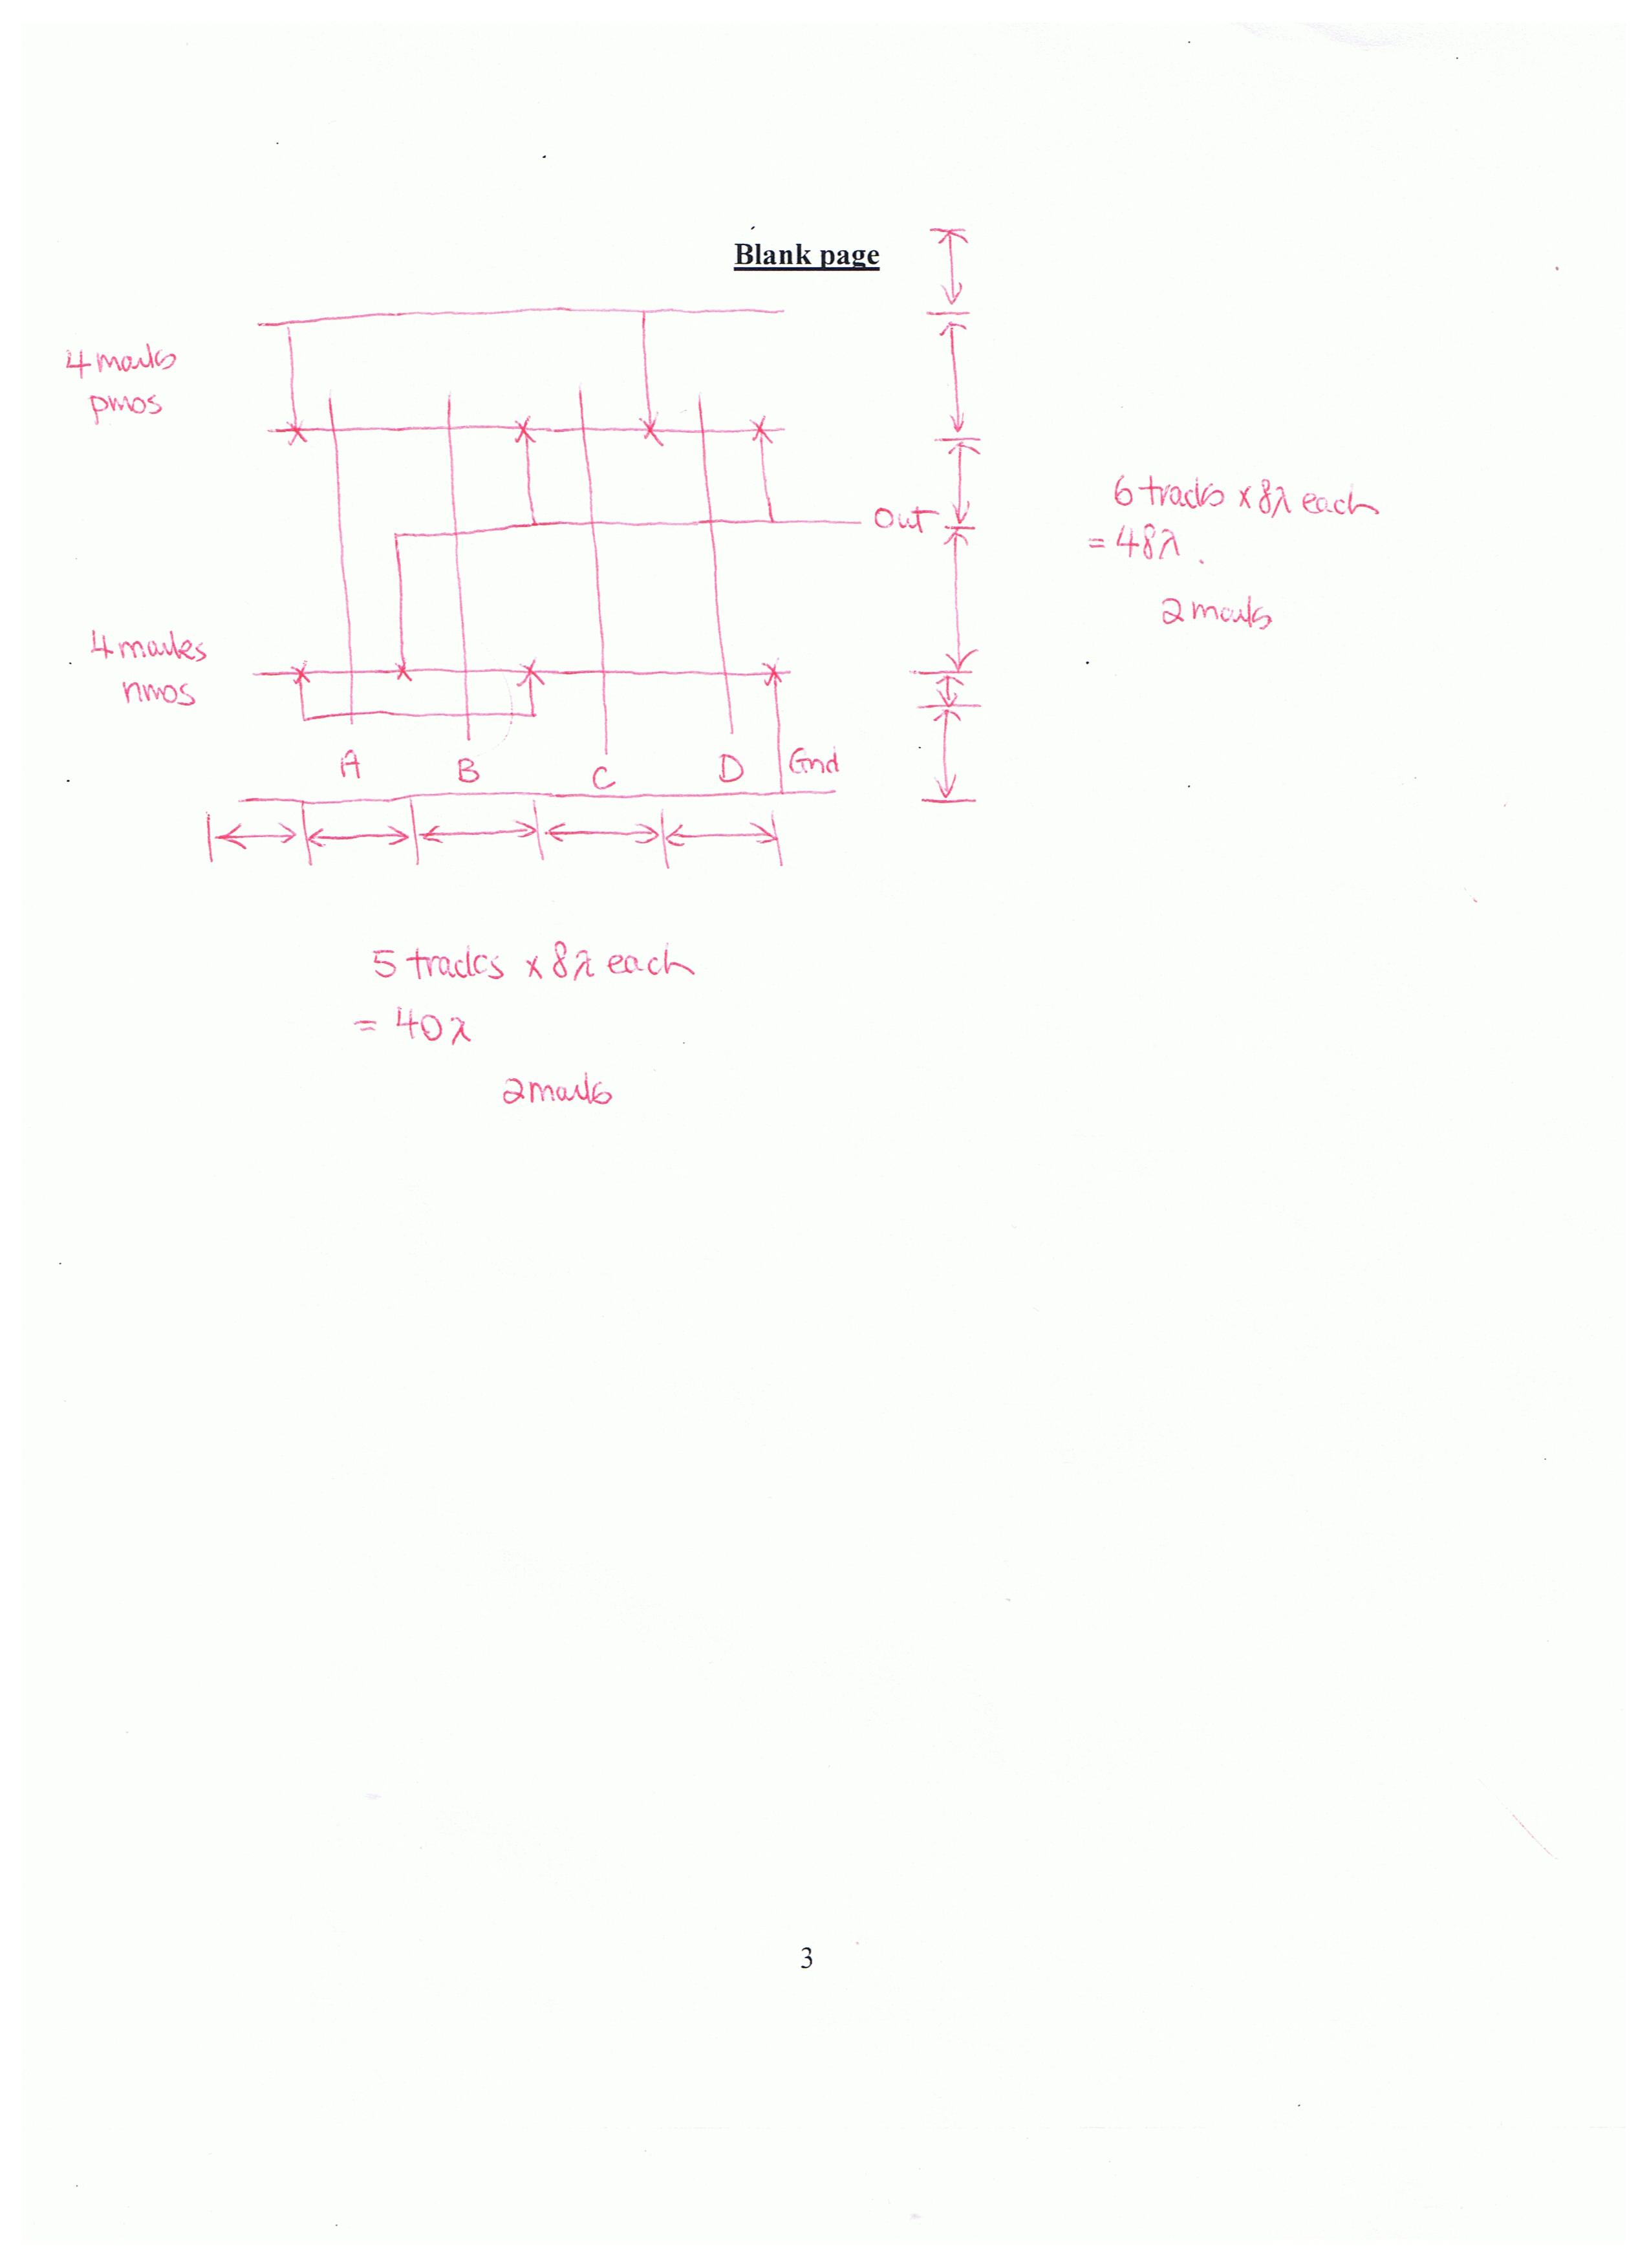 Blank page
4 marks
pmos
6 tracks x 8λ each
Out
= 48λ.
2 marks
4 marks
nmos
A B C D Gnd
5 tracks x 8λ each
= 40λ
2 marks
3